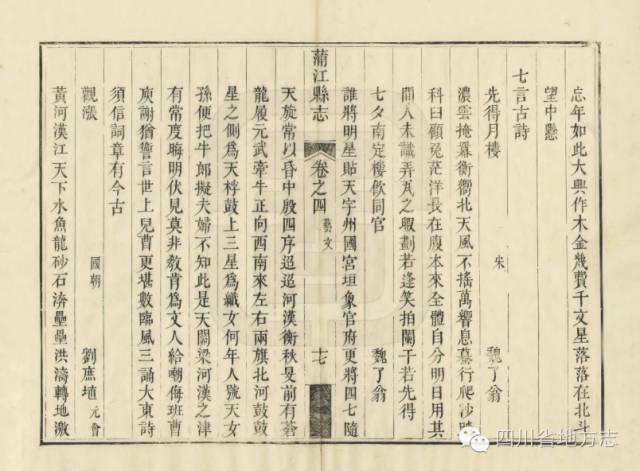 忘年如此大興作木金幾費千文星落落在北斗
望中懸
七言古詩
先得月樓 宋 魏了翁
濃雲掩羃衡衢北天風不搖萬響息蟇行爬沙
科曰顧兔茫洋長在腹本來全體自分明日用其
間人未識弄瓦之暇劃若逢笑拍闌干若先得
七夕南定樓飲同官 魏了翁
誰將明星貼天宇州國宮垣象官府更將四七隨
天旋常以昏中殷四序迢迢河漢衡秋旻前有蒼
龍履元武牽牛正向西南來左右兩旗北河鼓鼓
星之側為天桴鼓上三星為織女何年人號天女
孫便把牛郎擬夫婦不知此是天關梁河漢之津
有常度晦明伏見莫非敎肯為文人給嘲侮班曹
庾謝猶瞢言世上兒曹更堪數臨風三誦大東詩
須信詞章有今古
觀漲 國朝 劉庶埴 元會
黃河漢江天下水魚龍砂石濟壘壘洪濤轉地激
蒲江縣志
卷之四
藝文
十七
四川省地方志